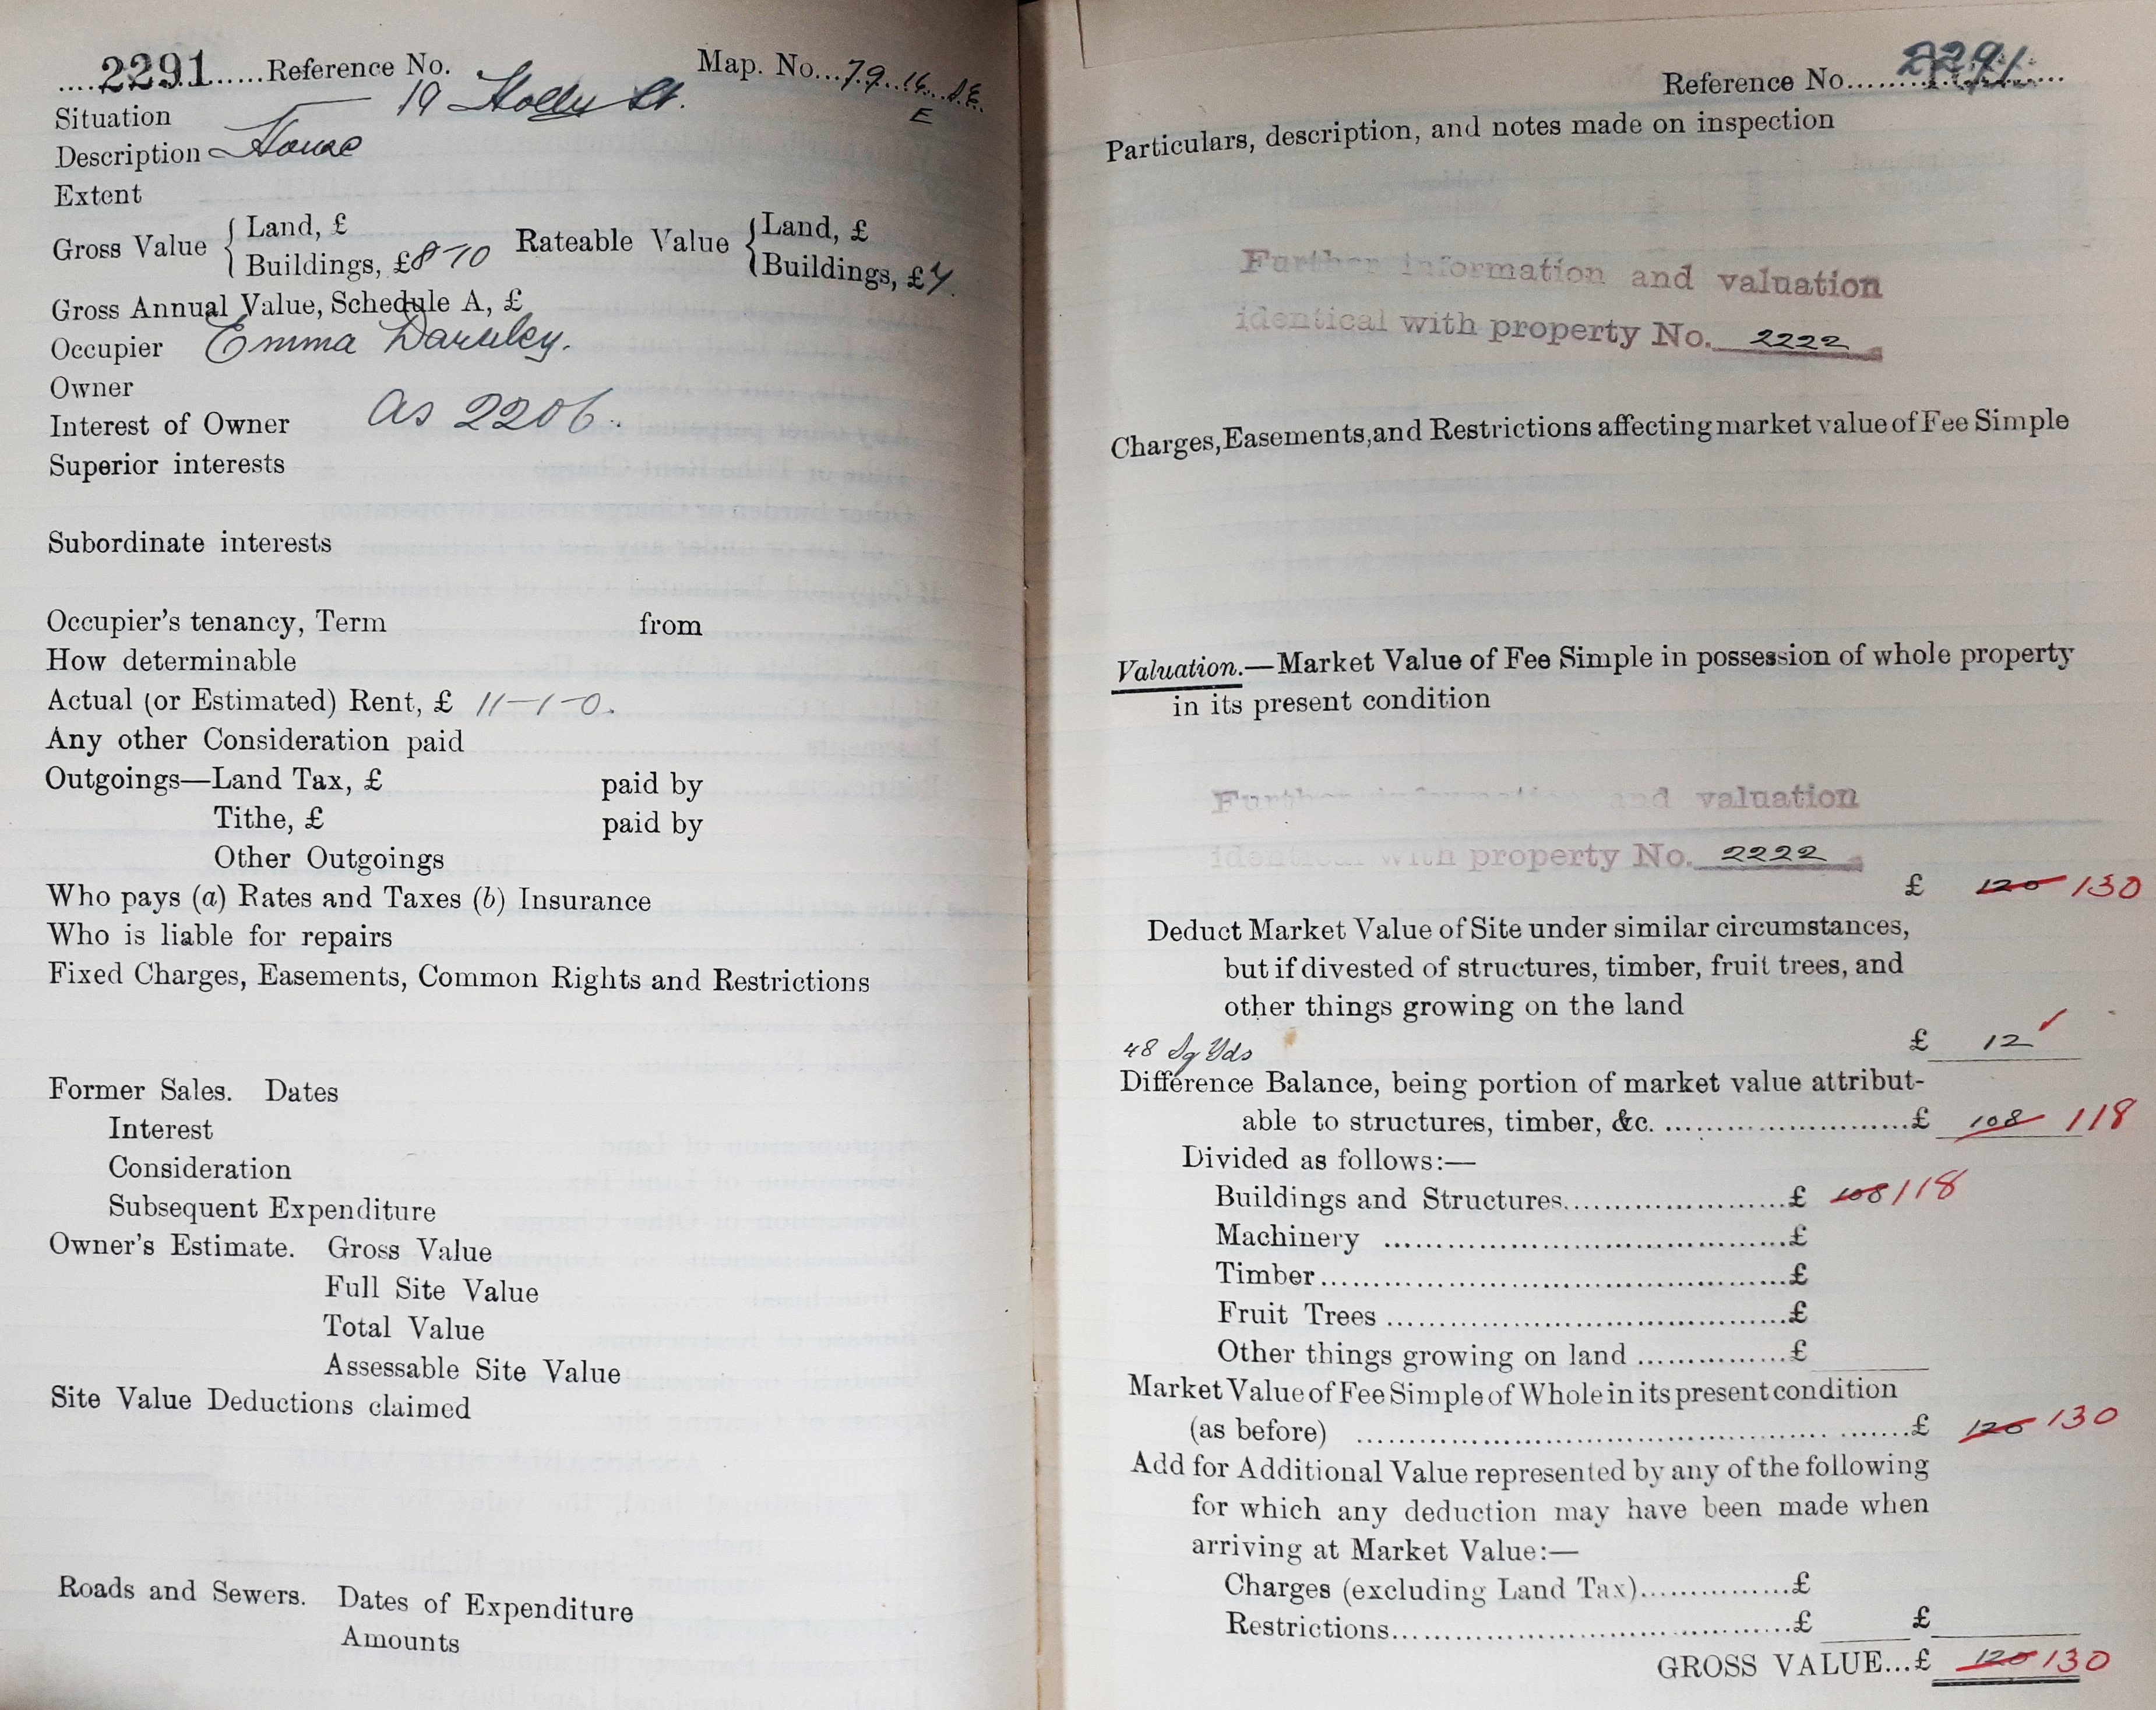 2291 Reference No. Map. No. 79.16. S.E.
E
Situation 19 Holly St.
Description House
Extent
Gross Value { Land, £
Buildings, £ 8-10 Rateable Value { Land, £
Buildings, £
Gross Annual Value, Schedule A, £
Occupier Emma
Owner
Interest of Owner As 2206.
Superior interests
Subordinate interests
Occupier's tenancy, Term from
How determinable
Actual (or Estimated) Rent, £ 11-1-0.
Any other Consideration paid
Outgoings—Land Tax, £ paid by
Tithe, £ paid by
Other Outgoings
Who pays (a) Rates and Taxes (b) Insurance
Who is liable for repairs
Fixed Charges, Easements, Common Rights and Restrictions
Former Sales. Dates
Interest
Consideration
Subsequent Expenditure
Owner's Estimate. Gross Value
Full Site Value
Total Value
Assessable Site Value
Site Value Deductions claimed
Roads and Sewers. Dates of Expenditure
Amounts
Reference No. 2291
Particulars, description, and notes made on inspection
Further information and valuation
identical with property No. 2222
Charges, Easements, and Restrictions affecting market value of Fee Simple
Valuation.—Market Value of Fee Simple in possession of whole property
in its present condition
Further information and valuation
identical with property No. 2222
£ 120 130
Deduct Market Value of Site under similar circumstances,
but if divested of structures, timber, fruit trees, and
other things growing on the land
48 Sq Yds £ 12
Difference Balance, being portion of market value attribut-
able to structures, timber, &c. £ 108 118
Divided as follows:—
Buildings and Structures £ 108 118
Machinery £
Timber £
Fruit Trees £
Other things growing on land £
Market Value of Fee Simple of Whole in its present condition
(as before) £ 120 130
Add for Additional Value represented by any of the following
for which any deduction may have been made when
arriving at Market Value:—
Charges (excluding Land Tax) £
Restrictions £ £
GROSS VALUE...£ 120 130